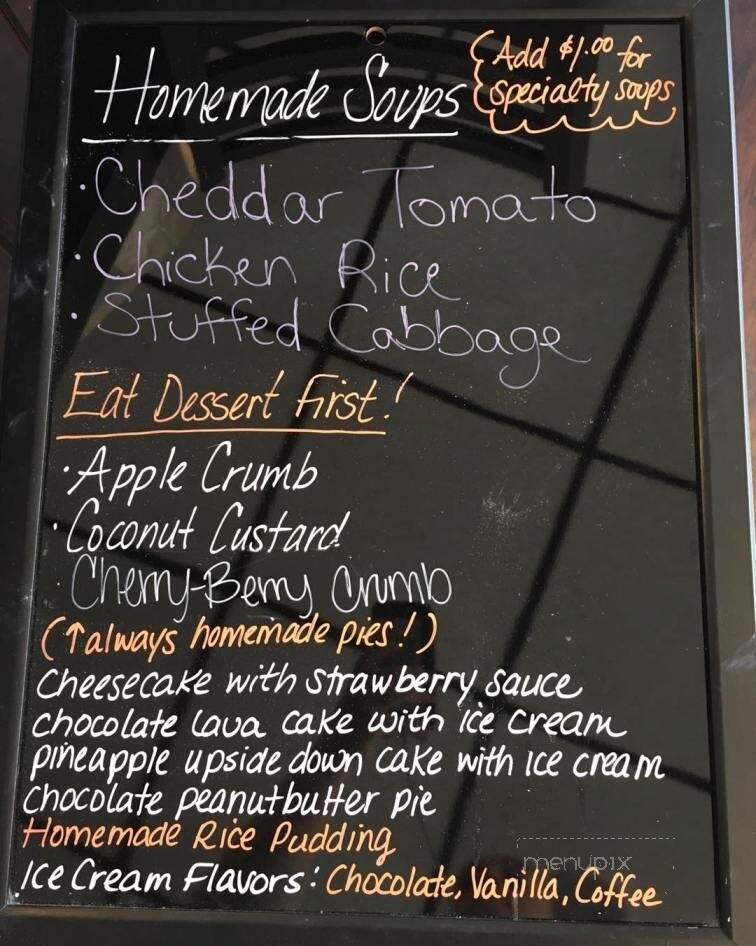 Homemade Soups
Add $1.00 for
specialty soups
· Cheddar Tomato
· Chicken Rice
· Stuffed Cabbage
Eat Dessert First!
· Apple Crumb
· Coconut Custard
· Cherry-Berry Crumb
(↑always homemade pies!)
Cheesecake with strawberry sauce
chocolate lava cake with ice cream
pineapple upside down cake with ice cream
chocolate peanutbutter pie
Homemade Rice Pudding
Ice Cream Flavors: Chocolate, Vanilla, Coffee
menupix